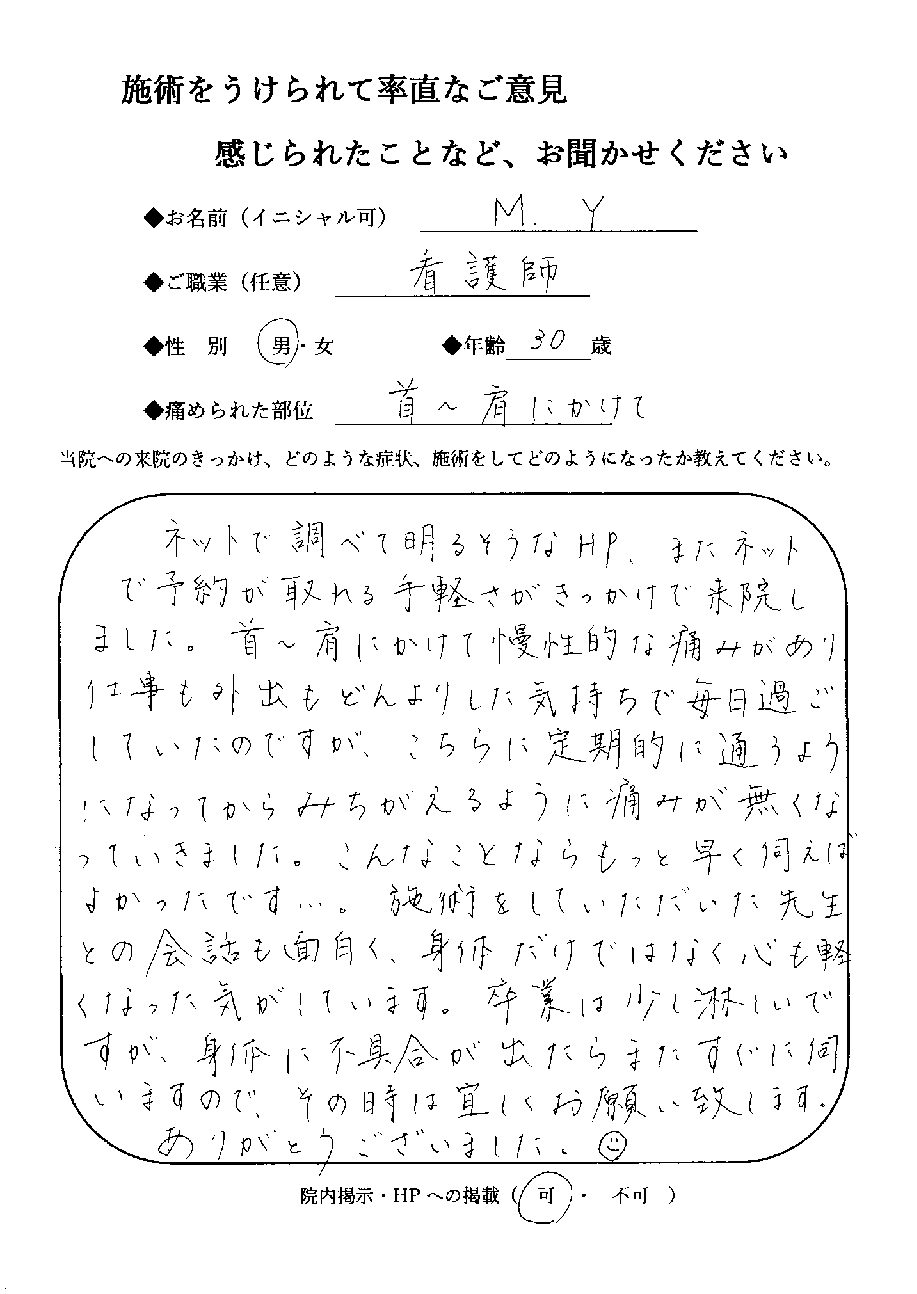 施術をうけられて率直なご意見
感じられたことなど、お聞かせください
◆お名前（イニシャル可） M. Y
◆ご職業（任意） 看護師
◆性　別　男・女　◆年齢 30 歳
◆痛められた部位 首～肩にかけて
当院への来院のきっかけ、どのような症状、施術をしてどのようになったか教えてください。
ネットで調べて明るそうなHP、またネット
で予約が取れる手軽さがきっかけで来院し
ました。首～肩にかけて慢性的な痛みがあり
仕事も外出もどんよりした気持ちで毎日過ご
していたのですが、こちらに定期的に通うよう
になってからみちがえるように痛みが無くな
っていきました。こんなことならもっと早く伺えば
よかったです…。施術をしていただいた先生
との会話も面白く、身体だけではなく心も軽
くなった気がしています。卒業は少し淋しいで
すが、身体に不具合が出たらまたすぐに伺
いますので、その時は宜しくお願い致します。
ありがとうございました。☺
院内掲示・HPへの掲載（　可　・　不可　）